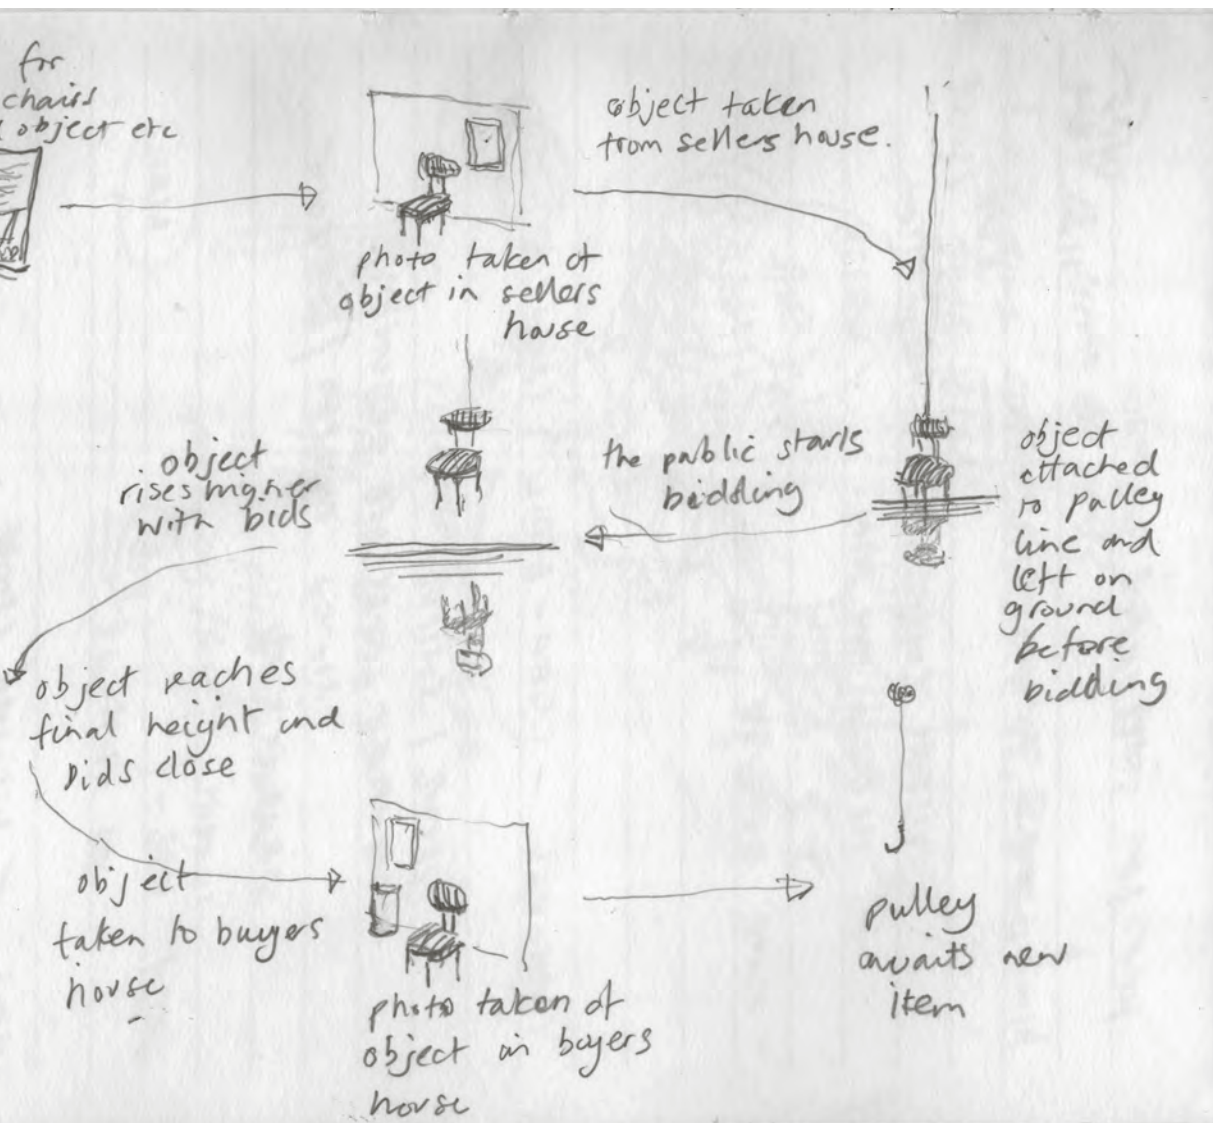 for
chairs
object etc
photo taken of
object in sellers
house
object taken
from sellers house.
object
attached
to pulley
line and
left on
ground
before
bidding
the public starts
bidding
object
rises higher
with bids
object reaches
final height and
bids close
object
taken to buyers
house
photo taken of
object in buyers
house
pulley
awaits new
item